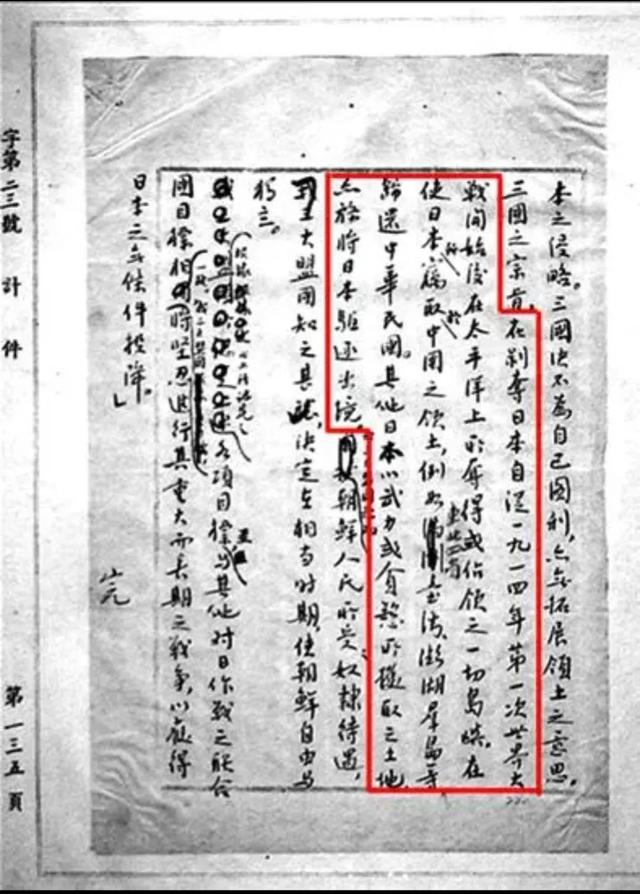 本之侵略。三國決不為自己圖利,亦無拓展領土之意思。
三國之宗旨,在剝奪日本自從一九一四年第一次世界大
戰開始後在太平洋上所奪得或佔領之一切島嶼,在
使日本所竊取於中國之領土,例如東北四省台湾,澎湖羣島等
歸還中華民國。其他日本以武力或貪慾所攫取之土地
亦務將日本驅逐出境。朝鮮人民所受奴隸待遇,
大盟國知之甚 決定在相當時期,使朝鮮自由與
獨立。
各項目 與其他對日作戰之聯合
國目標相同 將堅忍進行其重大而長期之戰爭,以獲得
日本之無條件投降。」
字第二三號 計 件 第一三五頁